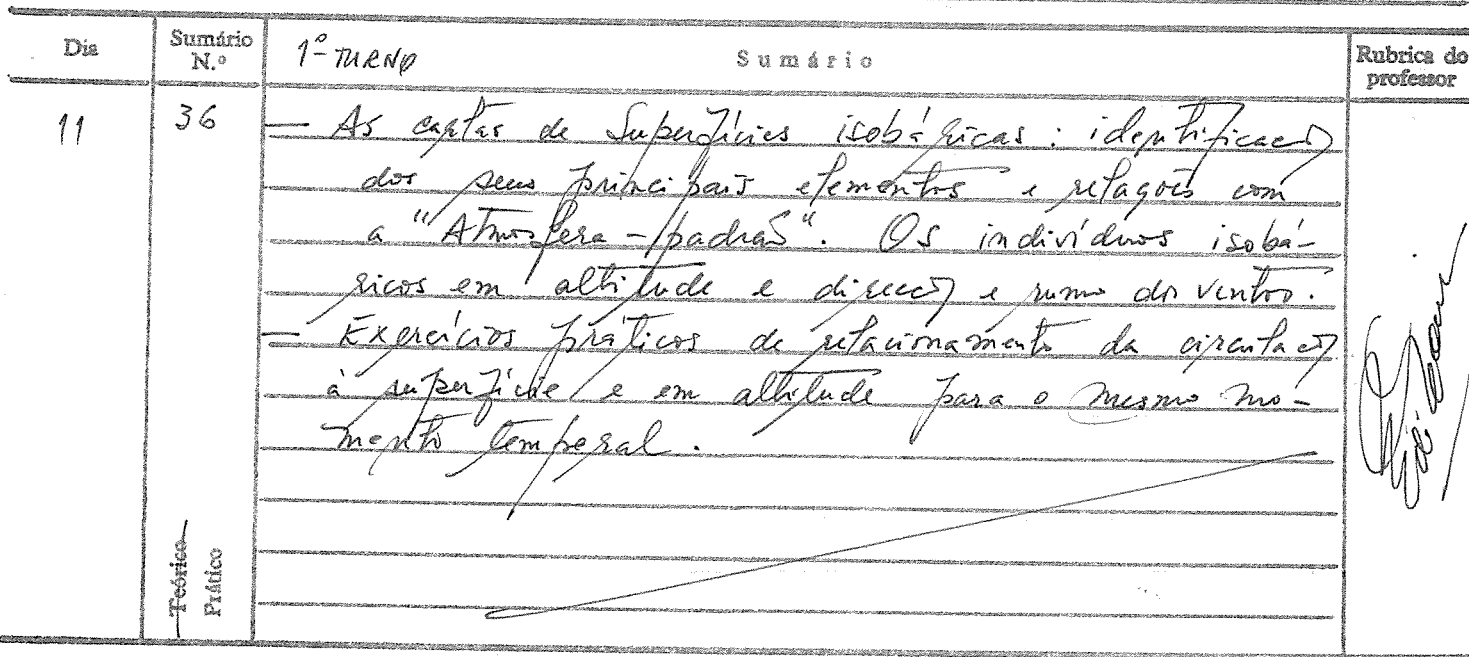 Dia Sumário N.º 1º TURNO Sumário Rubrica do professor
11 36 — As cartas de Superfícies isobáricas : identificação
dos seus principais elementos e relações com
a "Atmosfera-padrão". Os indivíduos isobá-
ricos em altitude e direcção e rumo dos ventos.
— Exercícios práticos de relacionamento da circulação
à superfície e em altitude para o mesmo mo-
mento temporal.
Teórico
Prático